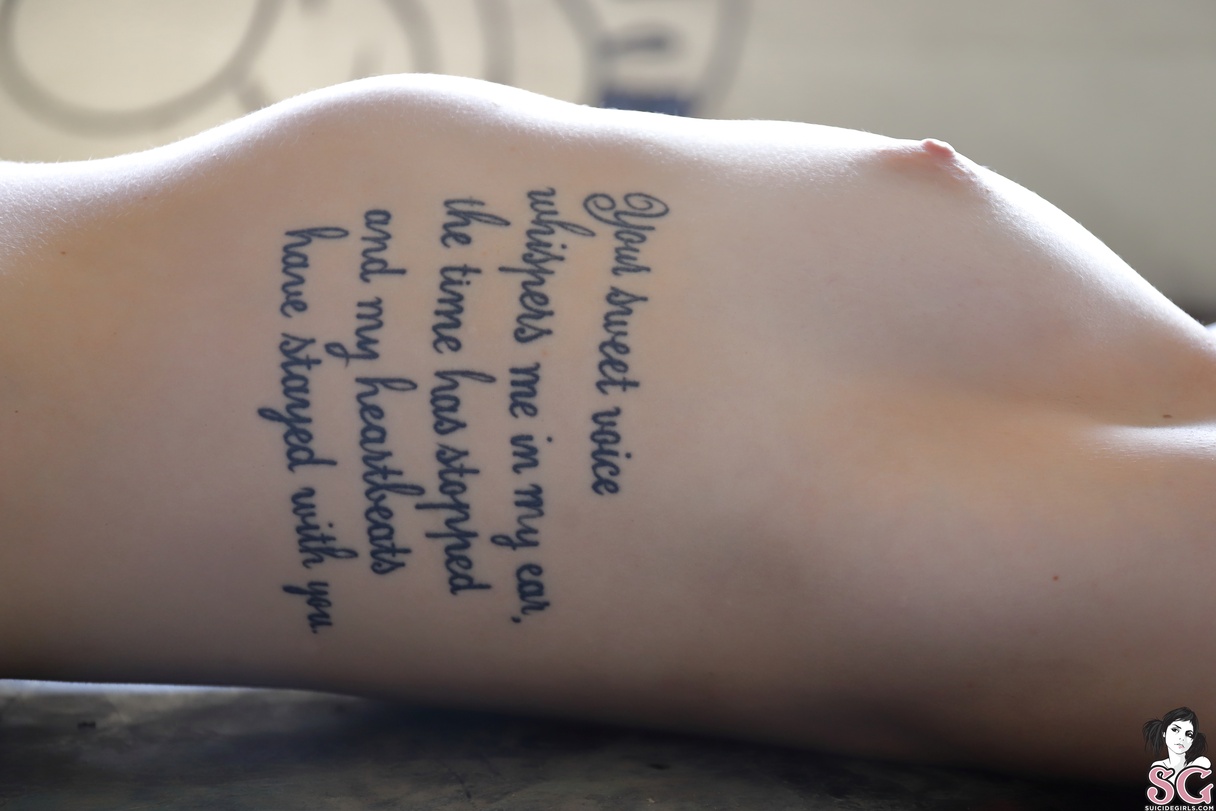 Your sweet voice
whispers me in my ear,
the time has stopped
and my heartbeats
have stayed with you.
SG
SUICIDEGIRLS.COM